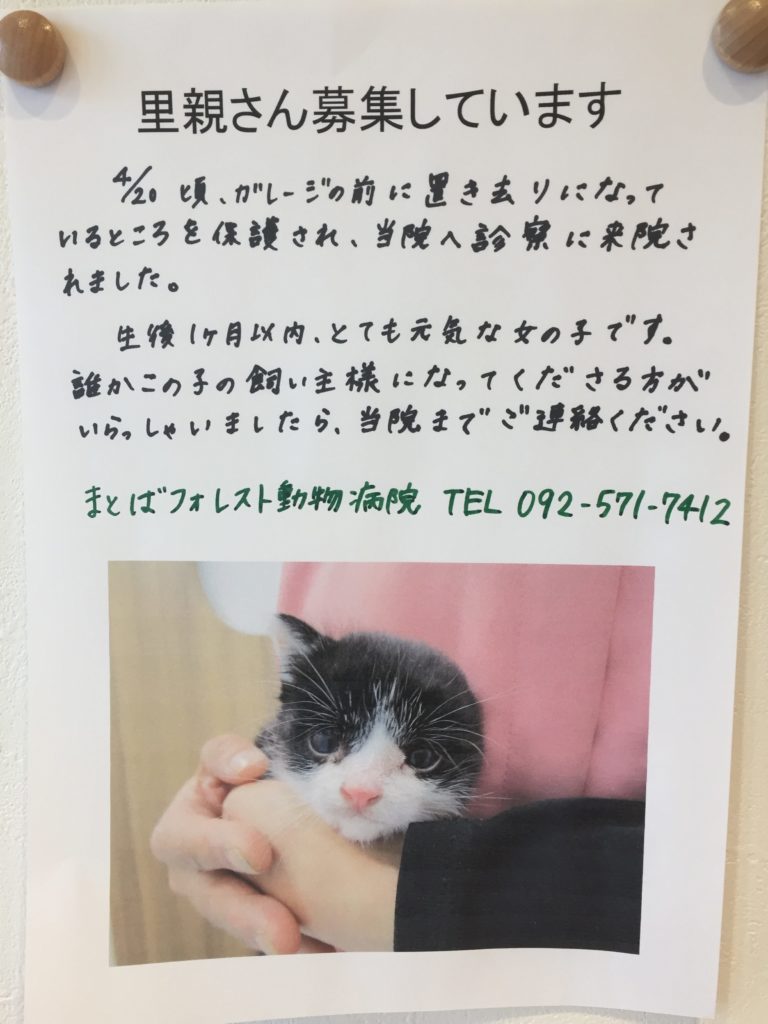 里親さん募集しています
4/20 頃、ガレージの前に置き去りになって
いるところを保護され、当院へ診察に来院さ
れました。
生後1ヶ月以内、とても元気な女の子です。
誰かこの子の飼い主様になってくださる方が
いらっしゃいましたら、当院までご連絡ください。
まとばフォレスト動物病院 TEL 092-571-7412